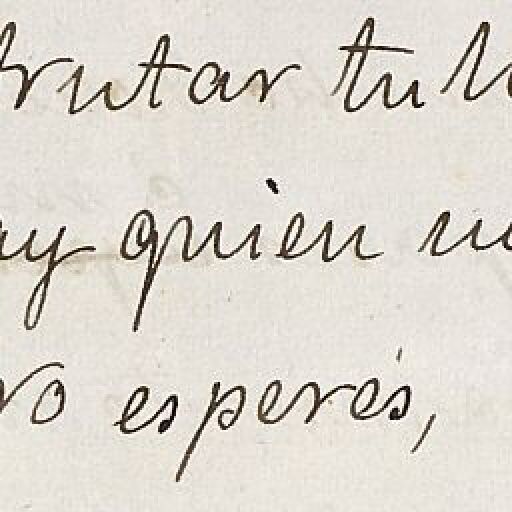 trutar tu
ay quien
ro esperés,